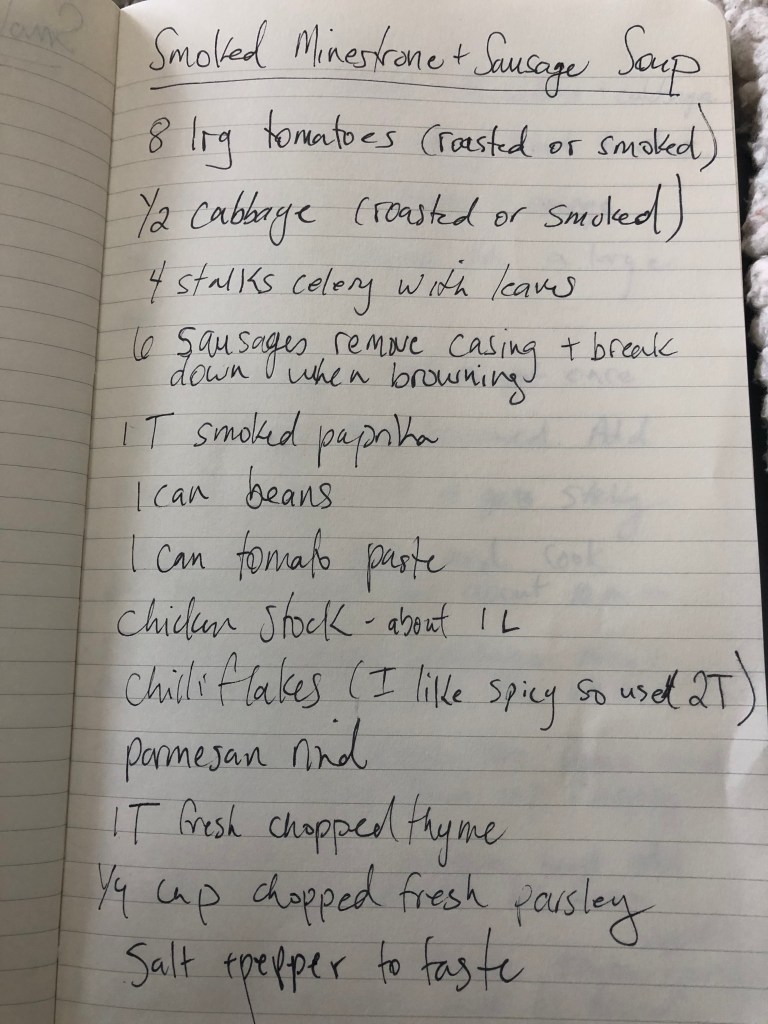 Smoked Minestrone + Sausage Soup
8 lrg tomatoes (roasted or smoked)
1/2 cabbage (roasted or smoked)
4 stalks celery with leaves
6 sausages remove casing + break
down when browning
1 T smoked paprika
1 can beans
1 can tomato paste
chicken stock - about 1 L
chilli flakes (I like spicy so used 2T)
parmesan rind
1T fresh chopped thyme
1/4 cup chopped fresh parsley
Salt + pepper to taste